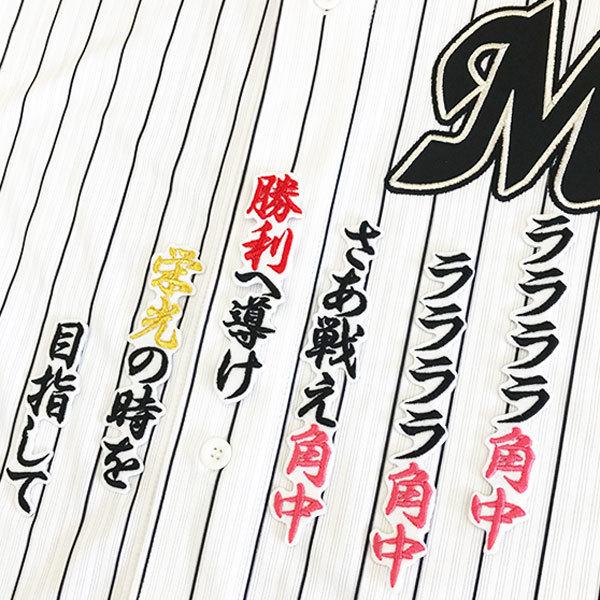 M
ララララララ角中
ララララララ角中
さあ戦え角中
勝利へ導け
栄光の時を
目指して